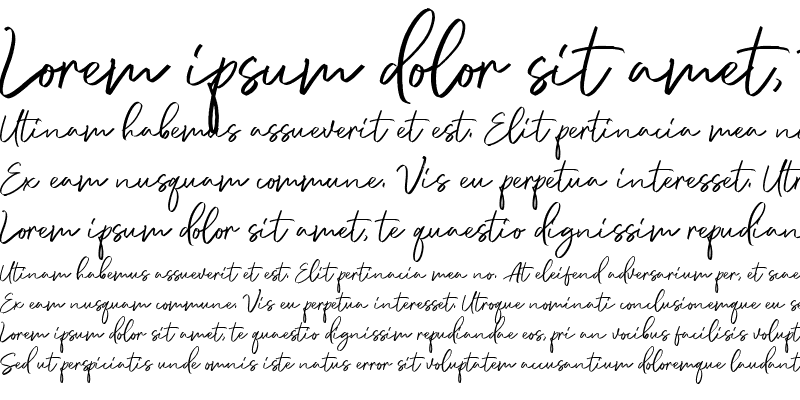 Lorem ipsum dolor sit amet,
Utinam habemus assueverit et est. Elit pertinacia mea
Ex eam nusquam commune. Vis eu perpetua interesset.
Lorem ipsum dolor sit amet, te quaestio dignissim
Utinam habemus assueverit et est. Elit pertinacia mea no. At eleifend adversarium per, et
Ex eam nusquam commune. Vis eu perpetua interesset. Utroque nominati conclusionemque eu
Lorem ipsum dolor sit amet, te quaestio dignissim repudiandae eos, pri an vocibus facilisis
Sed ut perspiciatis unde omnis iste natus error sit voluptatem accusantium doloremque